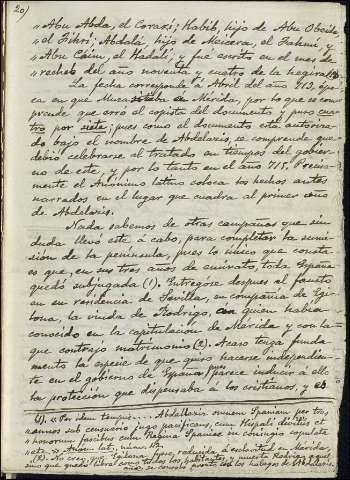 20)
"Abu Abda, el Coraxi; Habib, hijo de Abu Obeida,
"el Fihri; Abdalá, hijo de Maicera, el Fahmi, y
"Abu Cáim, el Hadalí, y fué escrito en el mes de
"recheb del año noventa y cuatro de la hegira
La fecha corresponde á Abril del año 713, épo-
ca en que Muza estaba en Mérida, por lo que se com-
prende que erró el copista del documento y puso cua-
tro por siete; pues como el documento está autoriza-
do bajo el nombre de Abdelaziz, se comprende que
debió celebrarse el tratado en tiempos del gobier-
no de este, y por lo tanto en el año 715. Precisa-
mente el Anónimo latino coloca los hechos antes
narrados en el lugar que cuadra al primer año
de Abdelaziz.
Nada sabemos de otras campañas que sin
duda llevó este á cabo, para completar la sumi-
sion de la península, pues lo único que consta
es que, en sus tres años de emirato, toda España
quedó subyugada (1). Entregóse despues al fausto
en su residencia de Sevilla, en compañía de Egi-
lona, la viuda de Rodrigo, á quien habia
conocido en la capitulacion de Mérida y con la
que contrajo matrimonio (2). Acaso tenga funda-
mento la especie de que quiso hacerse independien-
te en el gobierno de España, pues parece inducir á ello
la protección que dispensaba á los cristianos, y
(1). "Per idem tempus... Abdellaziz omnem Spaniam per tres
"annos sub censuario jugo pacificans, cum Hispali divitiis et
"honorum fascibus cum Regina Spaniae in conjugio copulata
"etc." Anon. lat., núm. 42.
(2) No creo que Egilona fuese reducida á esclavitud en Mérida,
sino que quedó libre como todos los habitantes, y muerto Rodrigo
se consoló pronto con los halagos de Abdelaziz.